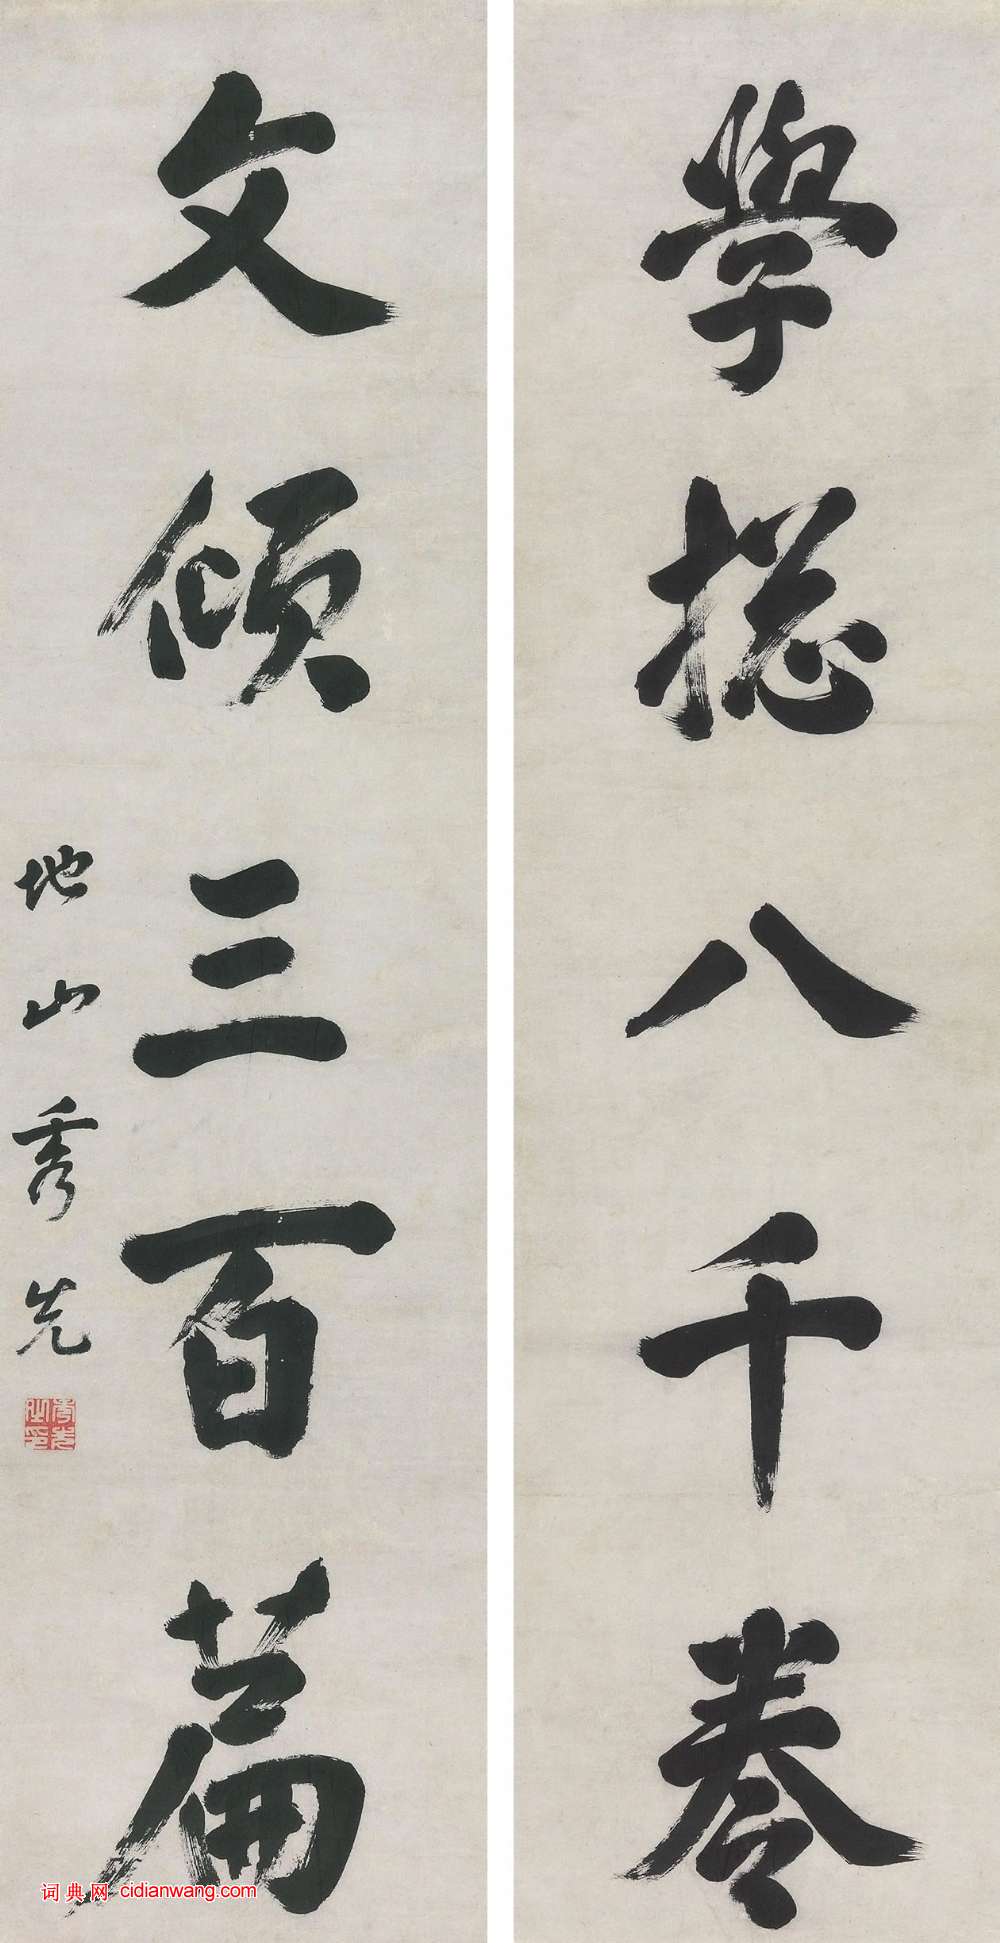 學摠八千卷
文傾三百篇
地山秀先
秀先之印
词典网 cidianwang.com